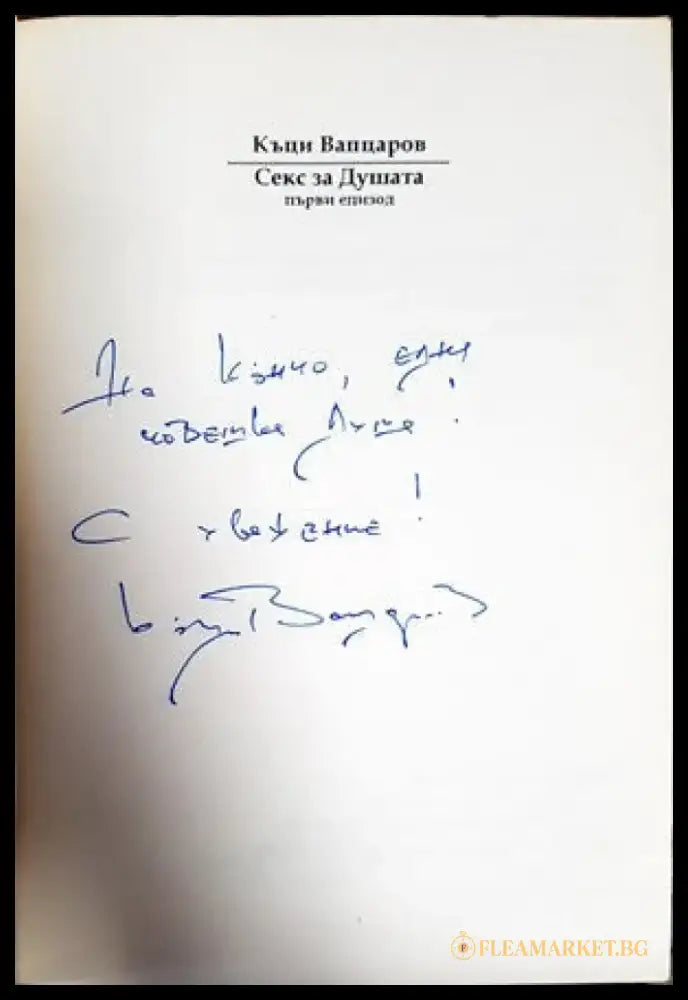 Къци Вапцаров
Секс за Душата
първи епизод
На Кънчо, един
човешка душа!
С уважение!
Къци Вапцаров
FLEAMARKET.BG